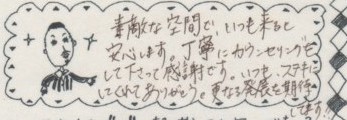 素敵な空間で、いつも来ると
安心します。丁寧にカウンセリングも
して下さって感謝です。いつも、ステキに
してくれてありがとう。更なる発展を期待
してます!